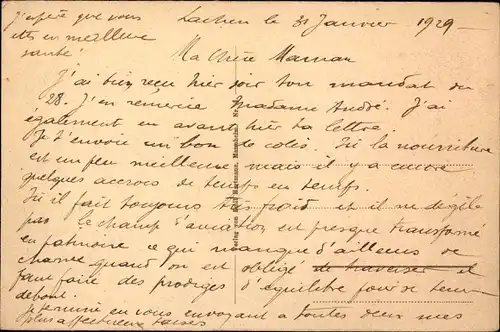 J'espère que vous
êtes en meilleure
santé
Lachen le 31 Janvier 1929
Ma Chère Maman
J'ai bien reçu hier soir ton mandat du
28. J'en remercie Madame André. J'ai
également eu avant hier ta lettre.
Je t'envoie un bon de colis. Ici la nourriture
est un peu meilleure mais il y a encore
quelques accrocs de temps en temps.
Ici il fait toujours très froid et il ne dégèle
pas le champ d'aviation est presque transformé
en patinoire ce qui manque d'ailleurs de
charme quand on est obligé de traverser il
faut faire des prodiges d'équilibre pour se tenir
debout.
Je termine en vous envoyant a toutes deux mes
plus affectueux baisers
Verlag von Hartmann, Mannheim